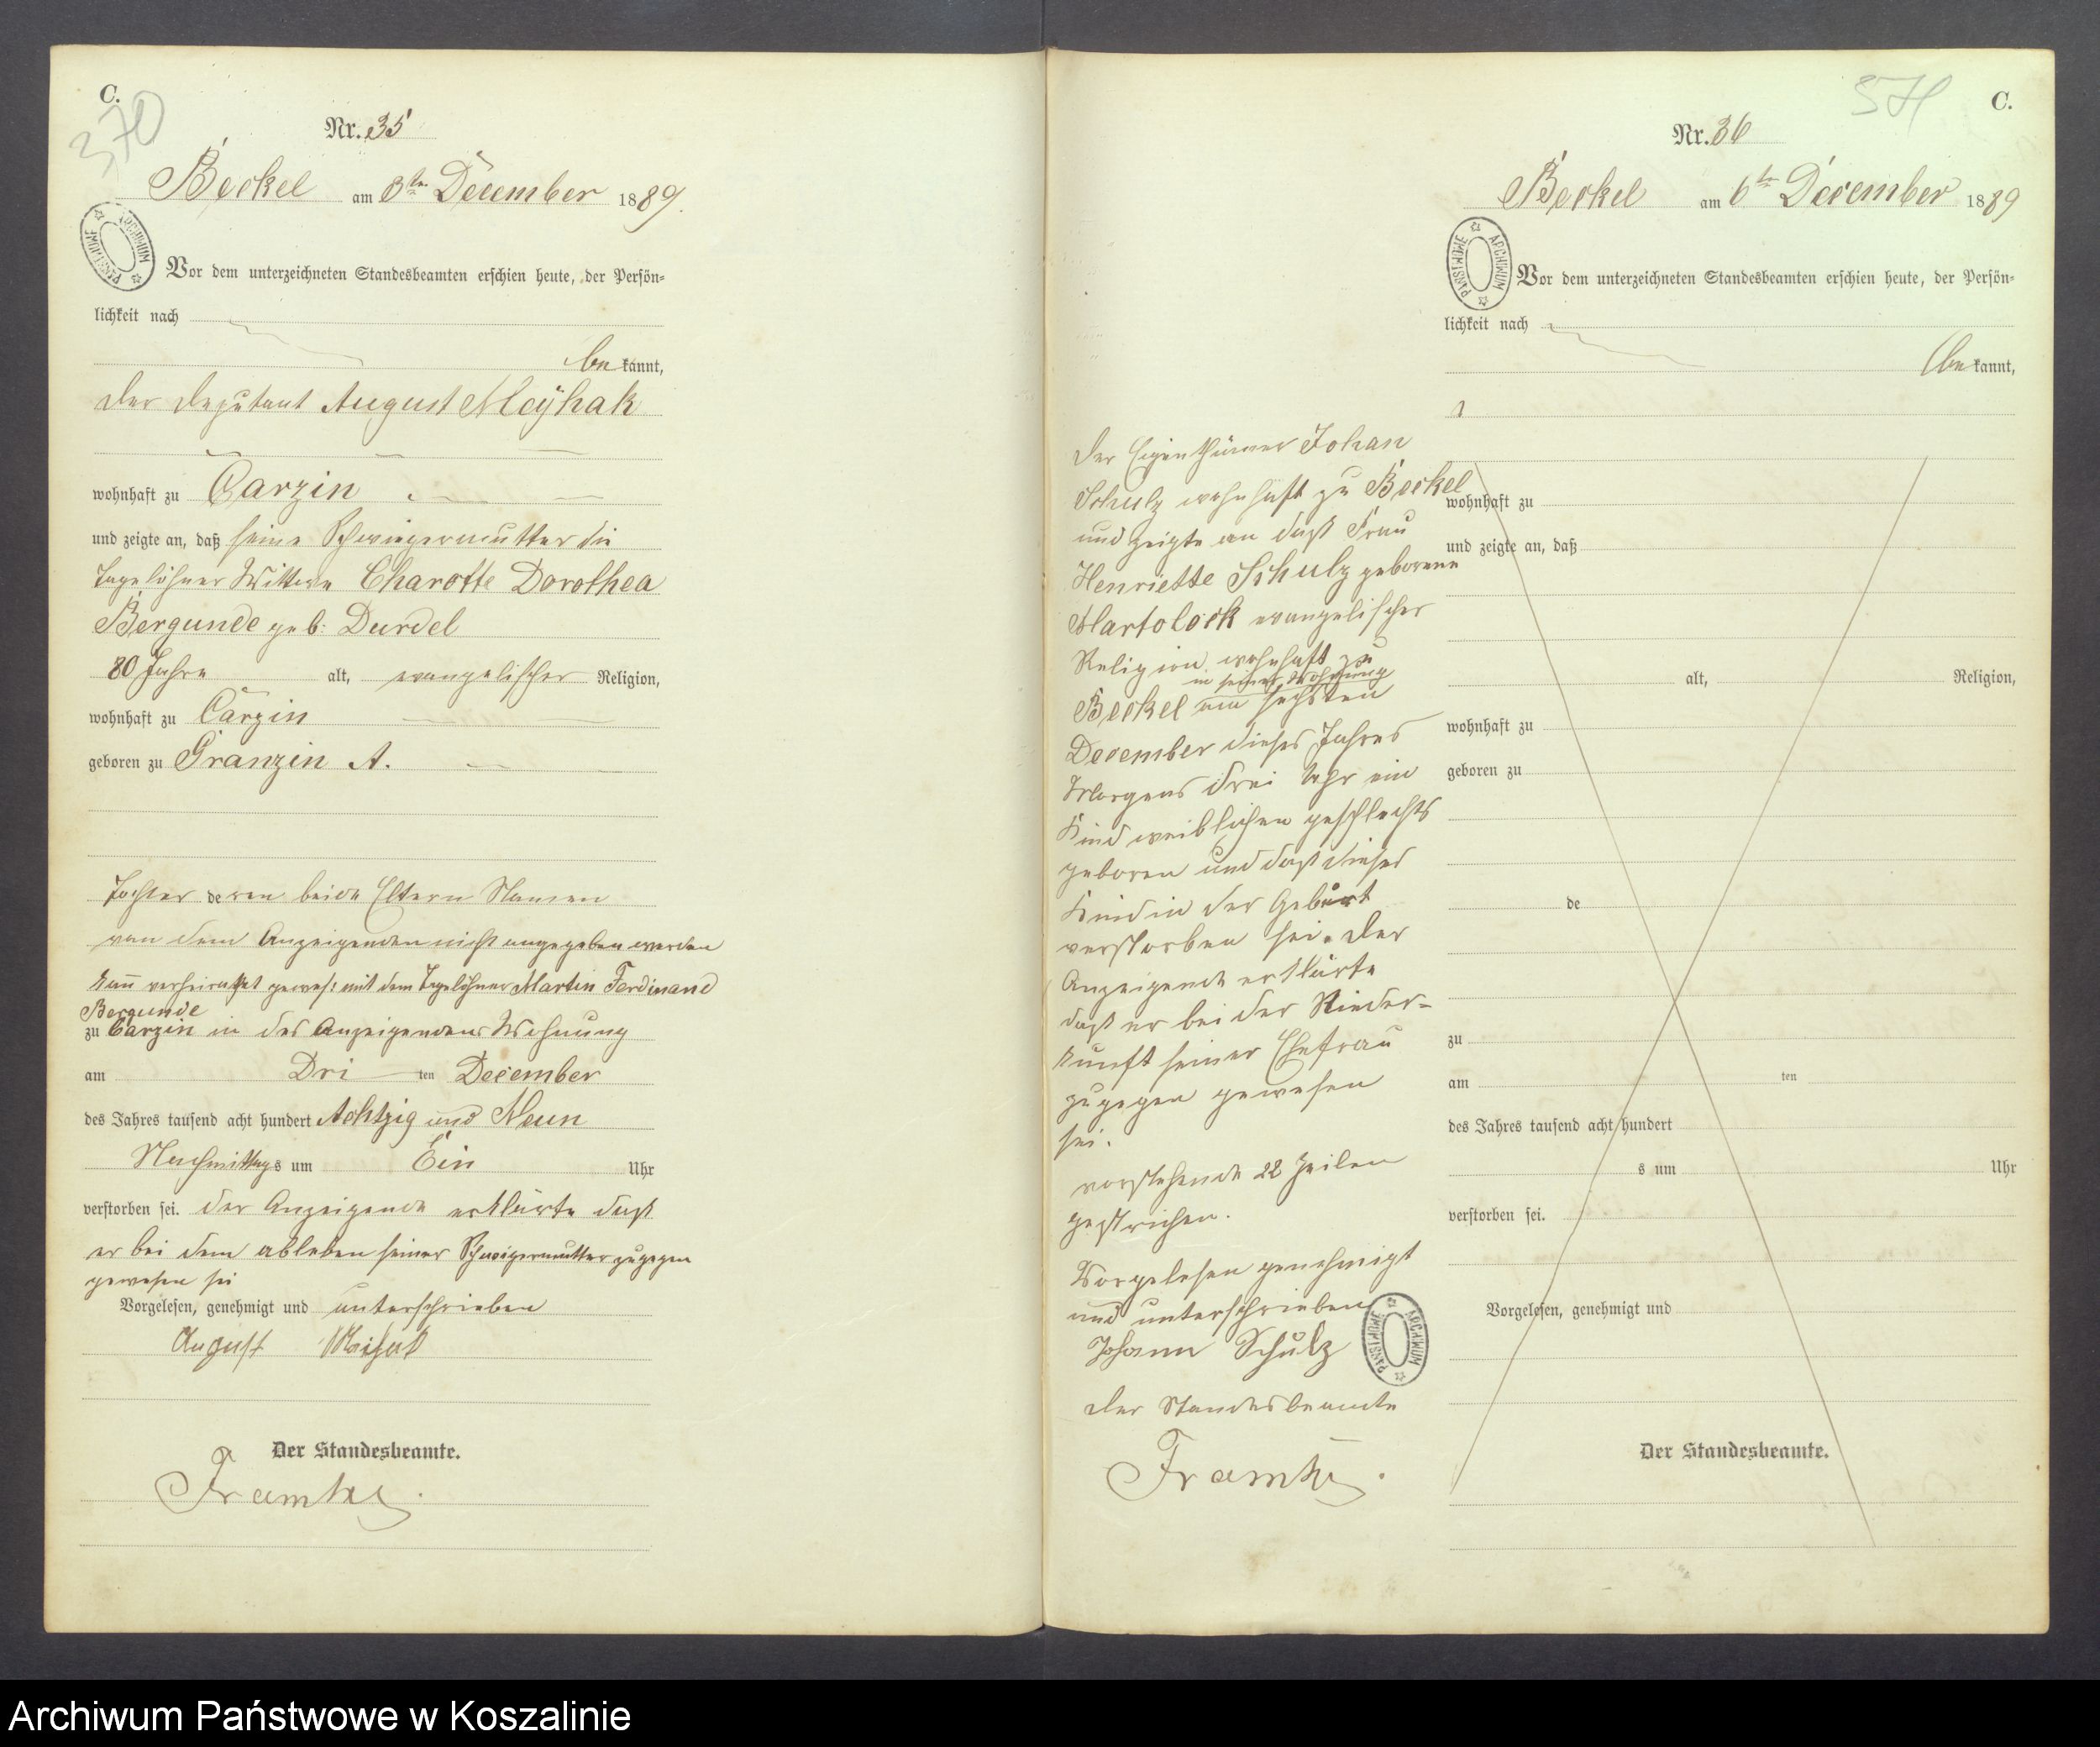 C.
370
Nr. 35
Beckel am 3ten December 1889.
PANSTWOWE ARCHIWUM
Vor dem unterzeichneten Standesbeamten erschien heute, der Persön-
lichkeit nach
be kannt,
der Deputant August Meyhak
wohnhaft zu Carzin
und zeigte an, daß seine Schwiegermutter die
Tagelöhner Wittwe Charotte Dorothea
Bergunde geb: Durdel
80 Jahre alt, evangelischer Religion,
wohnhaft zu Carzin
geboren zu Granzin A.
Tochter de ren beide Eltern Namen
von dem Anzeigenden nicht angegeben werden
kañ verheirathet gewes: mit dem Tagelöhner Martin Ferdinand
Bergunde
zu Carzin in des Anzeigenden Wohnung
am Dri ten December
des Jahres tausend acht hundert Achtzig und Neun
Nachmittag s um Ein Uhr
verstorben sei. der Anzeigende erklärte daß
er bei dem ableben seiner Schwigermutter zugegen
gewesen sei
Vorgelesen, genehmigt und unterschrieben
August
Der Standesbeamte.
C.
371
Nr. 36
Beckel am 6ten December 1889
PANSTWOWE ARCHIWUM
Vor dem unterzeichneten Standesbeamten erschien heute, der Persön-
lichkeit nach
be kannt,
der Eigenthümer Johan
Schulz wohnhaft zu Beckel
und zeigte an daß Frau
Henriette Schulz geborene
Martolock evangelischer
Religion wohnhaft zu
in seiner Wohnung
Beckel am sechsten
December dieses Jahres
Morgens drei Uhr ein
Kind weiblichen geschlechts
geboren und daß dieses
Kind in der Geburt
verstorben sei. der
Anzeigende erklärte
daß er bei der Nieder-
kunft seiner Ehefrau
zugegen gewesen
sei.
vorstehende 22 Zeilen
gestrichen.
Vorgelesen genehmigt
und unterschrieben
Johann Schulz
PANSTWOWE ARCHIWUM
der Standesbeamte
wohnhaft zu
und zeigte an, daß
alt, Religion,
wohnhaft zu
geboren zu
de
zu
am ten
des Jahres tausend acht hundert
s um Uhr
verstorben sei.
Vorgelesen, genehmigt und
Der Standesbeamte.
Archiwum Państwowe w Koszalinie